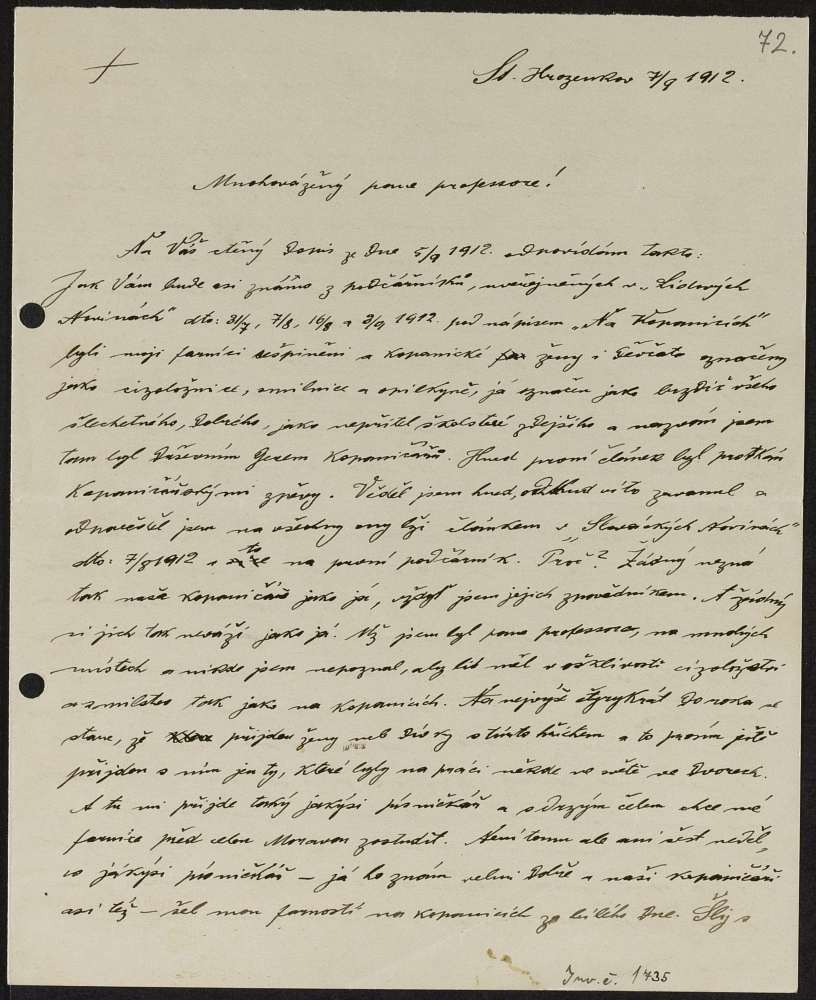 72.
St. Hrozenkov 7/9 1912.
Mnohovážený pane professore!
Na Váš ctěný dopis ze dne 5/9 1912. odpovídám takto:
Jak Vám bude asi známo z podčárníků, uveřejněných v „Lidových
Novinách" dto: 31/7, 7/8, 16/8 a 3/9 1912. pod nápisem „Na Kopanicích"
byli moji farníci zešpiněni a kopanické ženy i děvčata označeny
jako cizoložnice, smilnice a opilkyně, já označen jako bezdič všeho
šlechetného, dobrého, jako nepřítel školství zdejšího a nazván jsem
tam byl Duševním Gerem Kopaničářů. Hned první článek byl protkán
Kopaničářskými zpěvy. Věděl jsem hned, odkud vítr zavanul a
odpověděl jsem na všechny ony lži článkem v „Slováckých Novinách"
dto: 7/8 1912 a to na první podčárník. Proč? Žádný nezná
tak naše kopaničáře jako já, vždyť jsem jejich zpovědníkem. A žádný
si jich tak neváží jako já. Již jsem byl pane professore, na mnohých
místech a nikde jsem nepoznal, aby lid měl v ošklivosti cizoložství
a smilstvo tak jako na kopanicích. Na nejvýš čtyrykrát do roka se
stane, že přijdou ženy neb dívky s tímto hříchem a to prosím ještě
přijdou s ním jen ty, které byly na práci někde ve světě ve dvorech.
A tu mi přijde taký jakýsi písničkář a s drzým čelem chce mé
farníce před celou Moravou zostudit. Není tomu ale ani šest neděl,
co jakýsi písničkář – já ho znám velmi dobře a naši kopaničáři
asi též – šel mou farností na kopanicích za bílého dne. Šli s
Inv. č. 1735